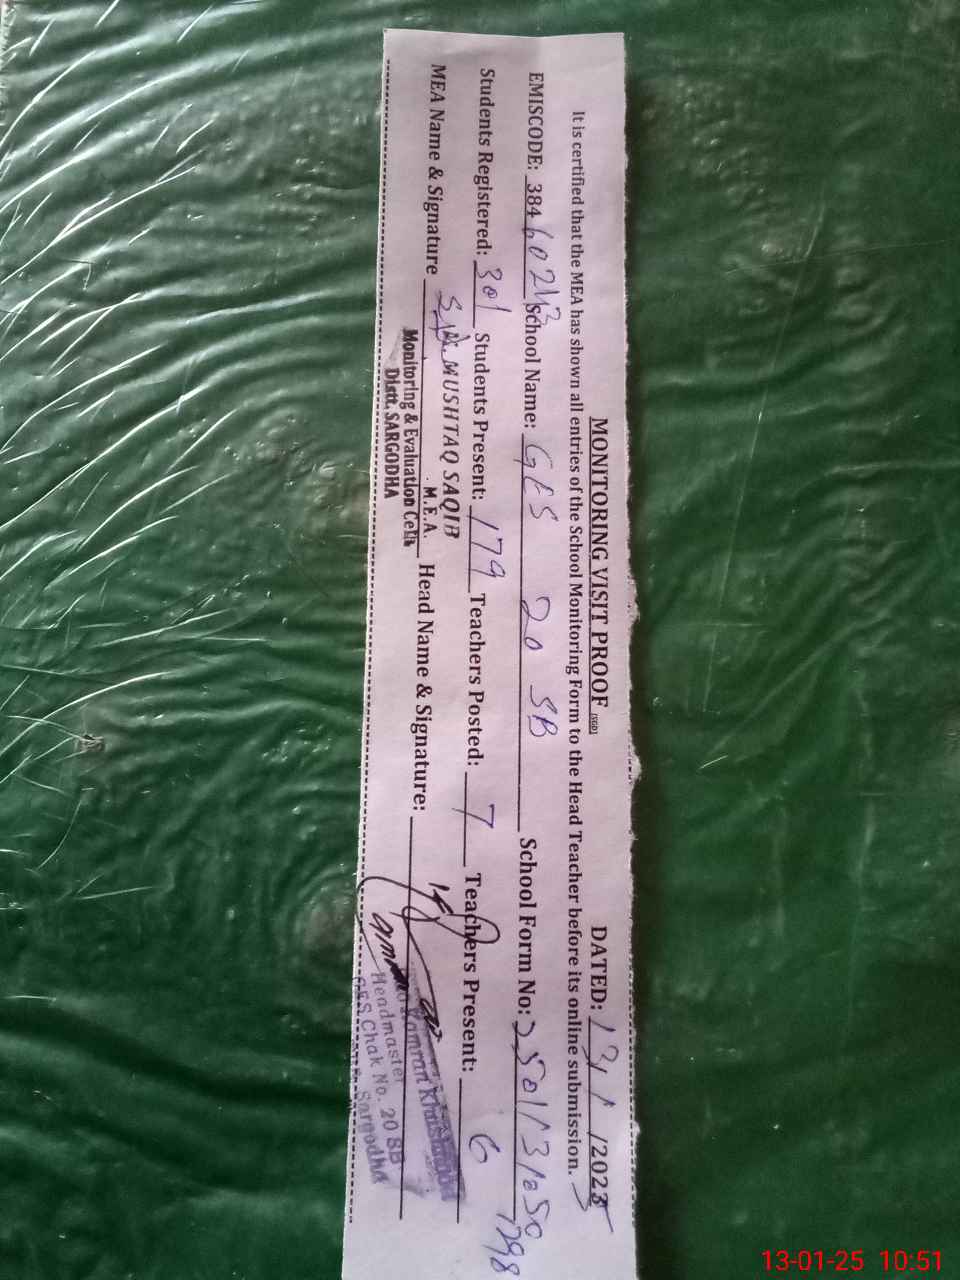 MONITORING VISIT PROOF (SGD) DATED: 13/1/2025
It is certified that the MEA has shown all entries of the School Monitoring Form to the Head Teacher before its online submission.
EMISCODE: 38460243 School Name: GES 20 SB School Form No: 250113/050
1298
Students Registered: 301 Students Present: 179 Teachers Posted: 7 Teachers Present: 6
MEA Name & Signature MUSHTAQ SAQIB Head Name & Signature:
M.E.A.
Monitoring & Evaluation Cell
Distt. SARGODHA
Kamran
Headmaster
GES Chak No. 20 SB
Sargodha
13-01-25 10:51